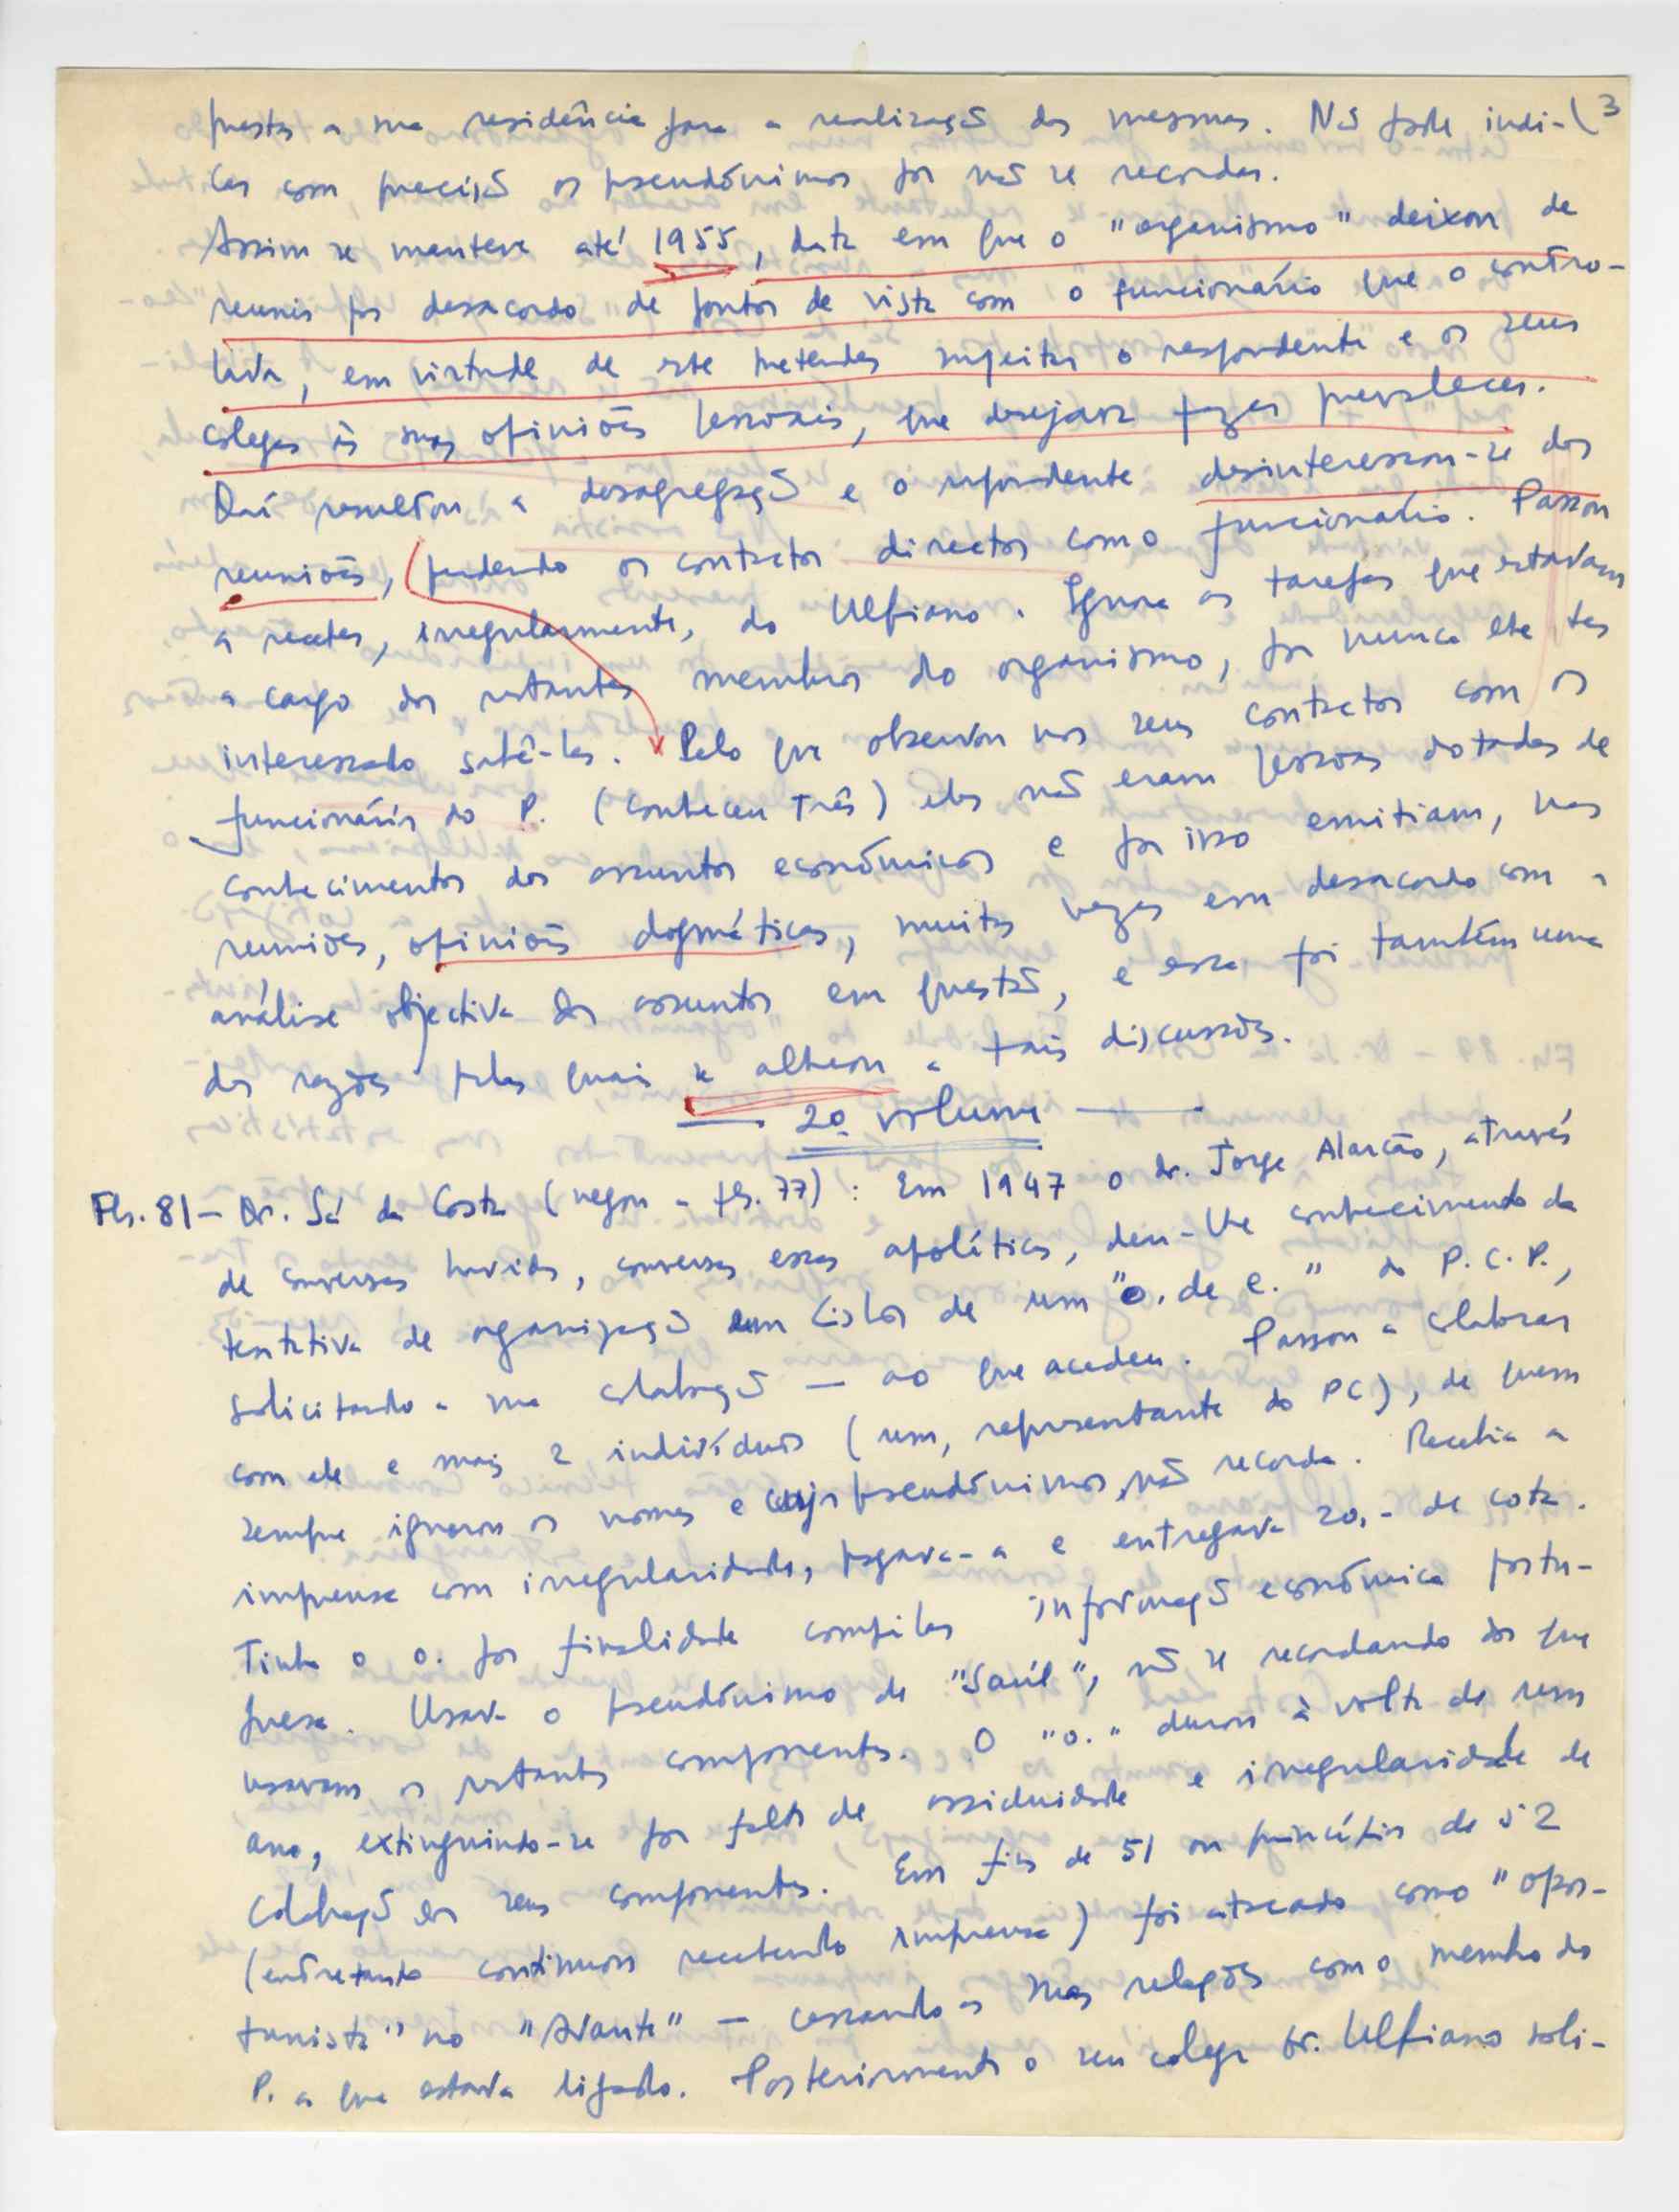 prestes a sua residência para a realização das mesmas. Não pode indi- (3
car com precisão os pseudónimos por não se recordar.
Assim se manteve até 1955, data em que o "organismo" deixou de
reunir por desacordo de pontos de vista com o funcionário que o contro-
lava, em virtude de este pretender sujeitar o respondente e os seus
colegas às suas opiniões pessoais, que desejava fazer prevalecer.
Daí resultou a desagregação e o respondente desinteressou-se das
reuniões, perdendo os contactos directos com o funcionário. Passou
a receber, irregularmente, do Ulpiano. Ignora as tarefas que estavam
a cargo dos restantes membros do organismo, por nunca lhe ter
interessado sabê-las. Pelo que observou nos seus contactos com os
funcionários do P. (conheceu três) eles não eram pessoas dotadas de
conhecimentos dos assuntos económicos e por isso emitiam, nas
reuniões, opiniões dogmáticas, muitas vezes em desacordo com a
análise objectiva dos assuntos em questão, e essa foi também uma
das razões pelas quais se alheou a tais discussões.
— 2º volume —
Fls. 81 — Dr. Sá da Costa (negou a fls. 77): Em 1947 o dr. Jorge Alarcão, através
de conversas havidas, conversas essas apolíticas, deu-lhe conhecimento da
tentativa de organização em Lisboa de um "o. de e." do P.C.P.,
solicitando a sua colabração — ao que acedeu. Passou a colaborar
com ele e mais 2 indivíduos (um, representante do PC), de quem
sempre ignorou os nomes e cujos pseudónimos não recorda. Recebia a
imprensa com irregularidade, pagava-a e entregava 20,- de cota.
Tinha o o. por finalidade compilar informação económica portu-
guesa. Usava o pseudónimo de "Saúl", não se recordando dos que
usavam os restantes componentes. O "o." durou à volta de um
ano, extinguindo-se por falta de assiduidade e irregularidade de
colabração dos seus componentes. Em fins de 51 ou princípios de 52
(entretanto continuou recebendo imprensa) foi atacado como "opor-
tunista" no "Avante" — cessando as suas relações com o membro do
P. a que estava ligado. Posteriormente o seu colega Dr. Ulpiano soli-